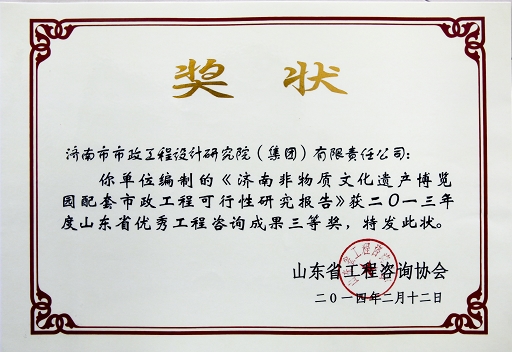 奖状
济南市市政工程设计研究院（集团）有限责任公司：
你单位编制的《济南非物质文化遗产博览
园配套市政工程可行性研究报告》获二〇一三年
度山东省优秀工程咨询成果三等奖，特发此状。
山东省工程咨询协会
二〇一四年二月十二日